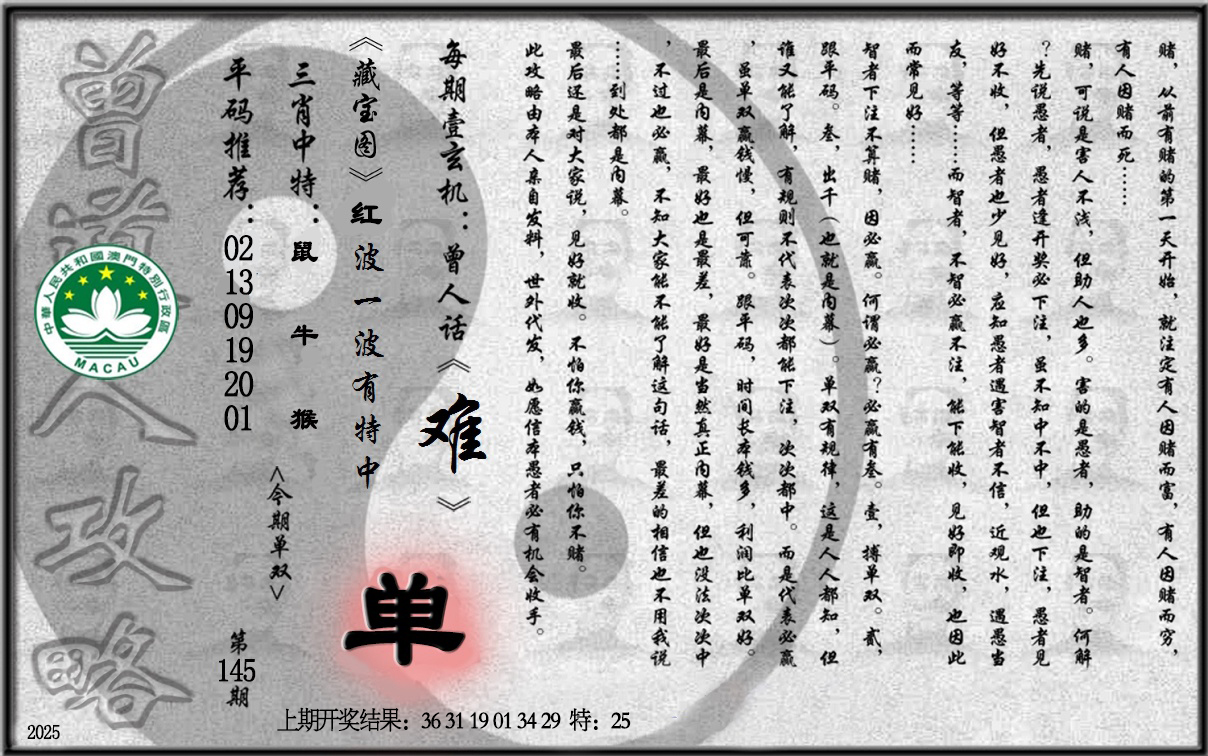 赌，从前有赌的第一天开始，就注定有人因赌而富，有人因赌而穷，
有人因赌而死……
赌，可说是害人不浅，但助人也多。害的是愚者，助的是智者。何解
？先说愚者，愚者逢开奖必下注，虽不知中不中，但也下注，愚者见
好不收，但愚者也少见好，应知愚者遇害智者不信，近观水，遇愚当
友，等等……而智者，不智必赢不注，能下能收，见好即收，也因此
而常见好……
智者下注不算赌，因必赢。何谓必赢？必赢有叁。壹，搏单双。贰，
跟平码。叁，出千（也就是内幕）。单双有规律，这是人人都知，但
谁又能了解，有规则不代表次次都能下注，次次都中。而是代表必赢
，虽单双赢钱慢，但可靠。跟平码，时间长本钱多，利润比单双好。
最后是内幕，最好也是最差，最好是当然真正内幕，但也没法次次中
，不过也必赢，不知大家能不能了解这句话，最差的相信也不用我说
……到处都是内幕。
最后还是对大家说，见好就收。不怕你赢钱，只怕你不赌。
此攻略由本人亲自发料，世外代发，如愿信本愚者必有机会收手。
每期壹玄机：曾人话《难》
《藏宝图》红波一波有特中
三肖中特：鼠 牛 猴
平码推荐：02 13 09 19 20 01
<今期单双>
单
第145期
曾道人攻略
中華人民共和國澳門特別行政區
MACAU
上期开奖结果：36 31 19 01 34 29 特：25
2025